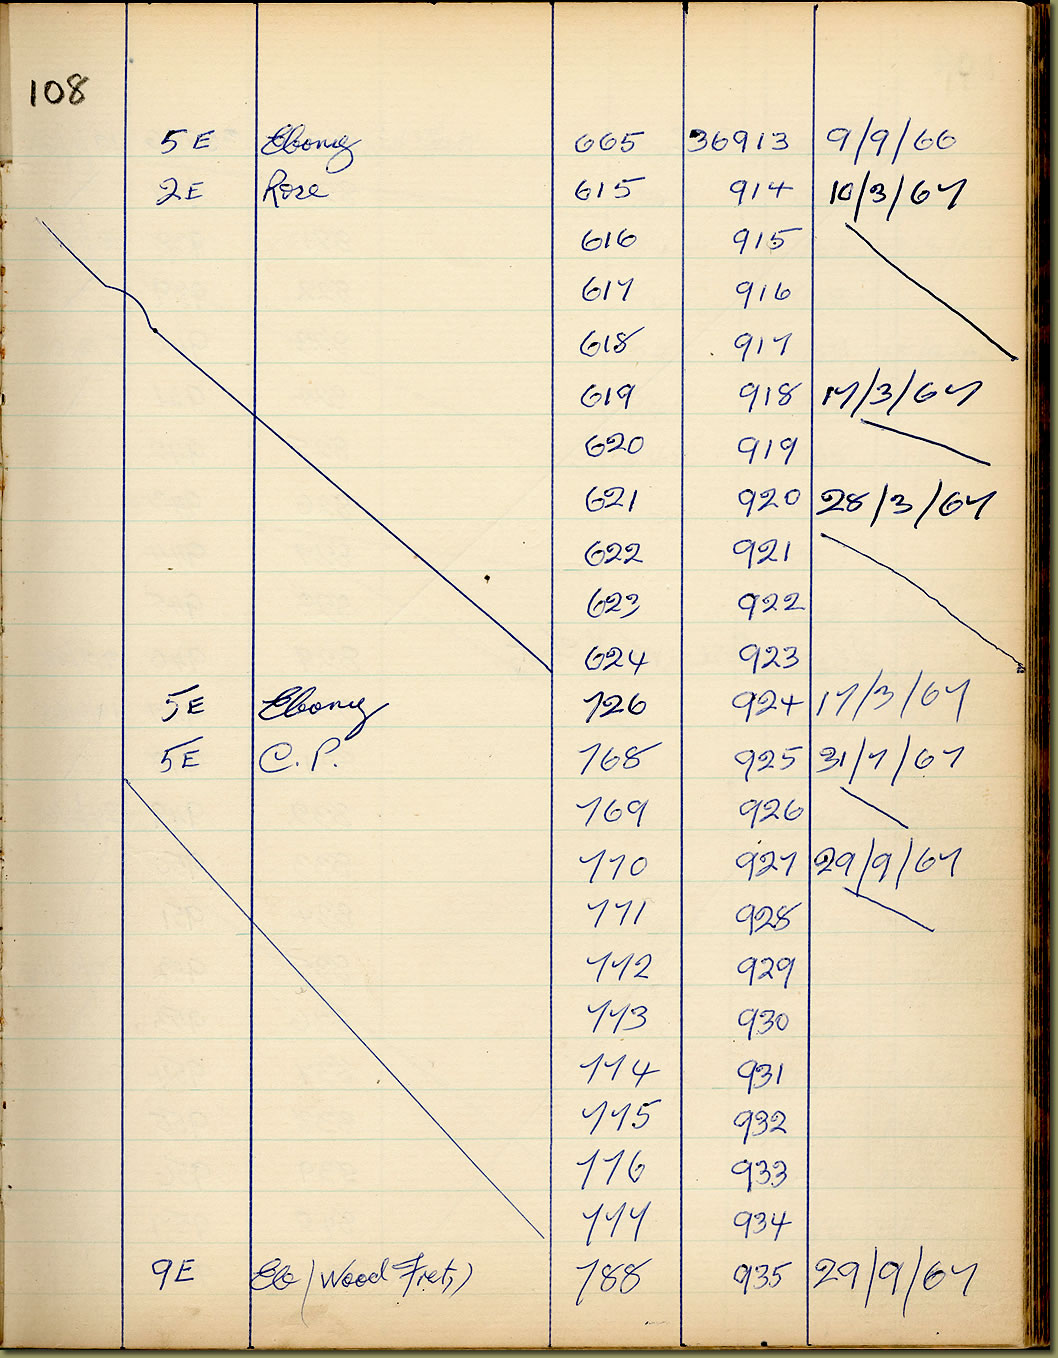 108
5E Ebony 665 36913 9/9/66
2E Rose 615 914 10/3/67
616 915
617 916
618 917
619 918 17/3/67
620 919
621 920 28/3/67
622 921
623 922
624 923
5E Ebony 726 924 17/3/67
5E C.P. 768 925 31/7/67
769 926
770 927 29/9/67
771 928
772 929
773 930
774 931
775 932
776 933
777 934
9E Eb (Wood Frets) 788 935 29/9/67